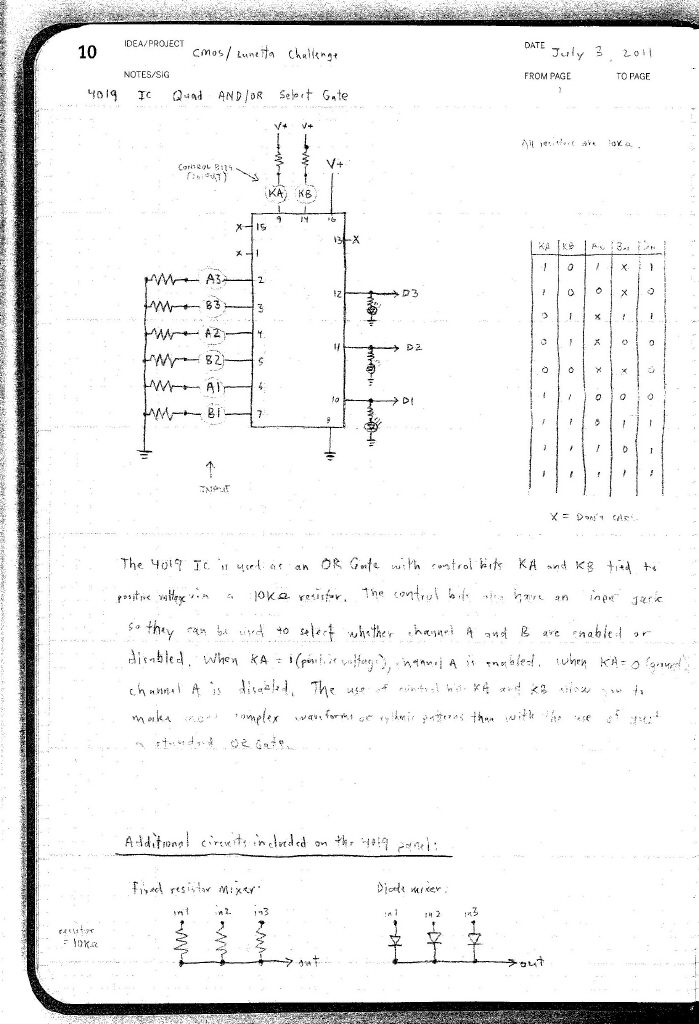 10
IDEA/PROJECT Cmos/Lunetta Challenge
DATE July 3, 2011
NOTES/SIG
FROM PAGE TO PAGE
4019 IC Quad AND/OR Select Gate
All resistors are 10KΩ.
V+ V+
V+
CONTROL BITS
KA KB
9 14 16
X 15
13 X
X 1
A3 2
12 D3
B3 3
A2 4
11 D2
B2 5
A1 6
10 D1
B1 7
8
INPUT
KA KB An Bn
1 0 1 X 1
1 0 0 X 0
0 1 X 1 1
0 1 X 0 0
0 0 X X 0
1 1 0 0 0
1 1 0 1 1
1 1 1 0 1
1 1 1 1 1
X = DON'T CARE
The 4019 IC is used as an OR Gate with control bits KA and KB tied to
positive voltage via a 10KΩ resistor. The control bits also have an input jack
so they can be used to select whether channel A and B are enabled or
disabled. When KA = 1 (positive voltage), channel A is enabled. When KA = 0 (ground)
channel A is disabled. The use of control bits KA and KB allow you to
make more complex waveforms or rythmic patterns than with the use of just
a standard OR Gate.
Additional circuits included on the 4019 panel:
Fixed resistor mixer:
Diode mixer:
in1 in2 in3
in1 in2 in3
resistor
= 10KΩ
out
out